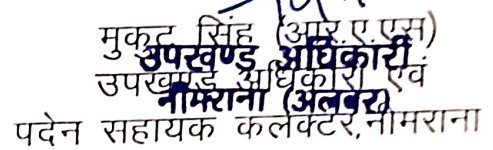 मुकुट सिंह (आर.ए.एस)
उपखण्ड अधिकारी
उपखण्ड अधिकारी एवं
नीमराना (अलवर)
पदेन सहायक कलेक्टर,नीमराना